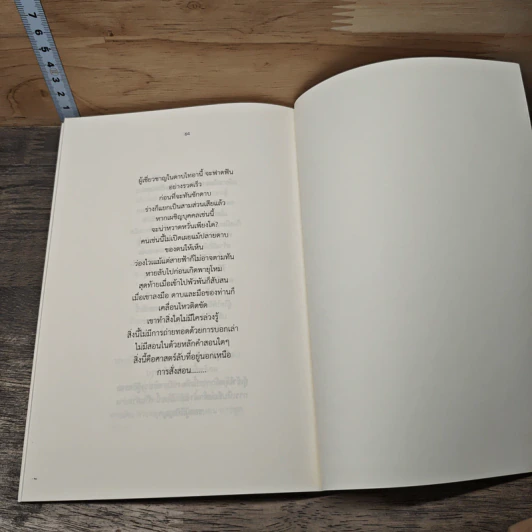 ผู้เชี่ยวชาญในดาบไทอานี้ จะฟาดฟัน
อย่างรวดเร็ว
ก่อนที่จะทันชักดาบ
ร่างก็แยกเป็นสามส่วนเสียแล้ว
หากเผชิญบุคคลเช่นนี้
จะน่าหวาดหวั่นเพียงใด?
คนเช่นนี้ไม่เปิดเผยแม้ปลายดาบ
ของตนให้เห็น
ว่องไวแม้แต่สายฟ้าก็ไม่อาจตามทัน
หายลับไปก่อนเกิดพายุใหม่
สุดท้ายเมื่อเข้าไปพัวพันก็สับสน
เมื่อเขาลงมือ ดาบและมือของท่านก็
เคลื่อนไหวติดขัด
เขาทำสิ่งใดไม่มีใครล่วงรู้
สิ่งนี้ไม่มีการถ่ายทอดด้วยการบอกเล่า
ไม่มีสอนในด้วยหลักคำสอนใดๆ
สิ่งนี้คือศาสตร์ลับที่อยู่นอกเหนือ
การสั่งสอน........
7 6 5 4 3 2 1